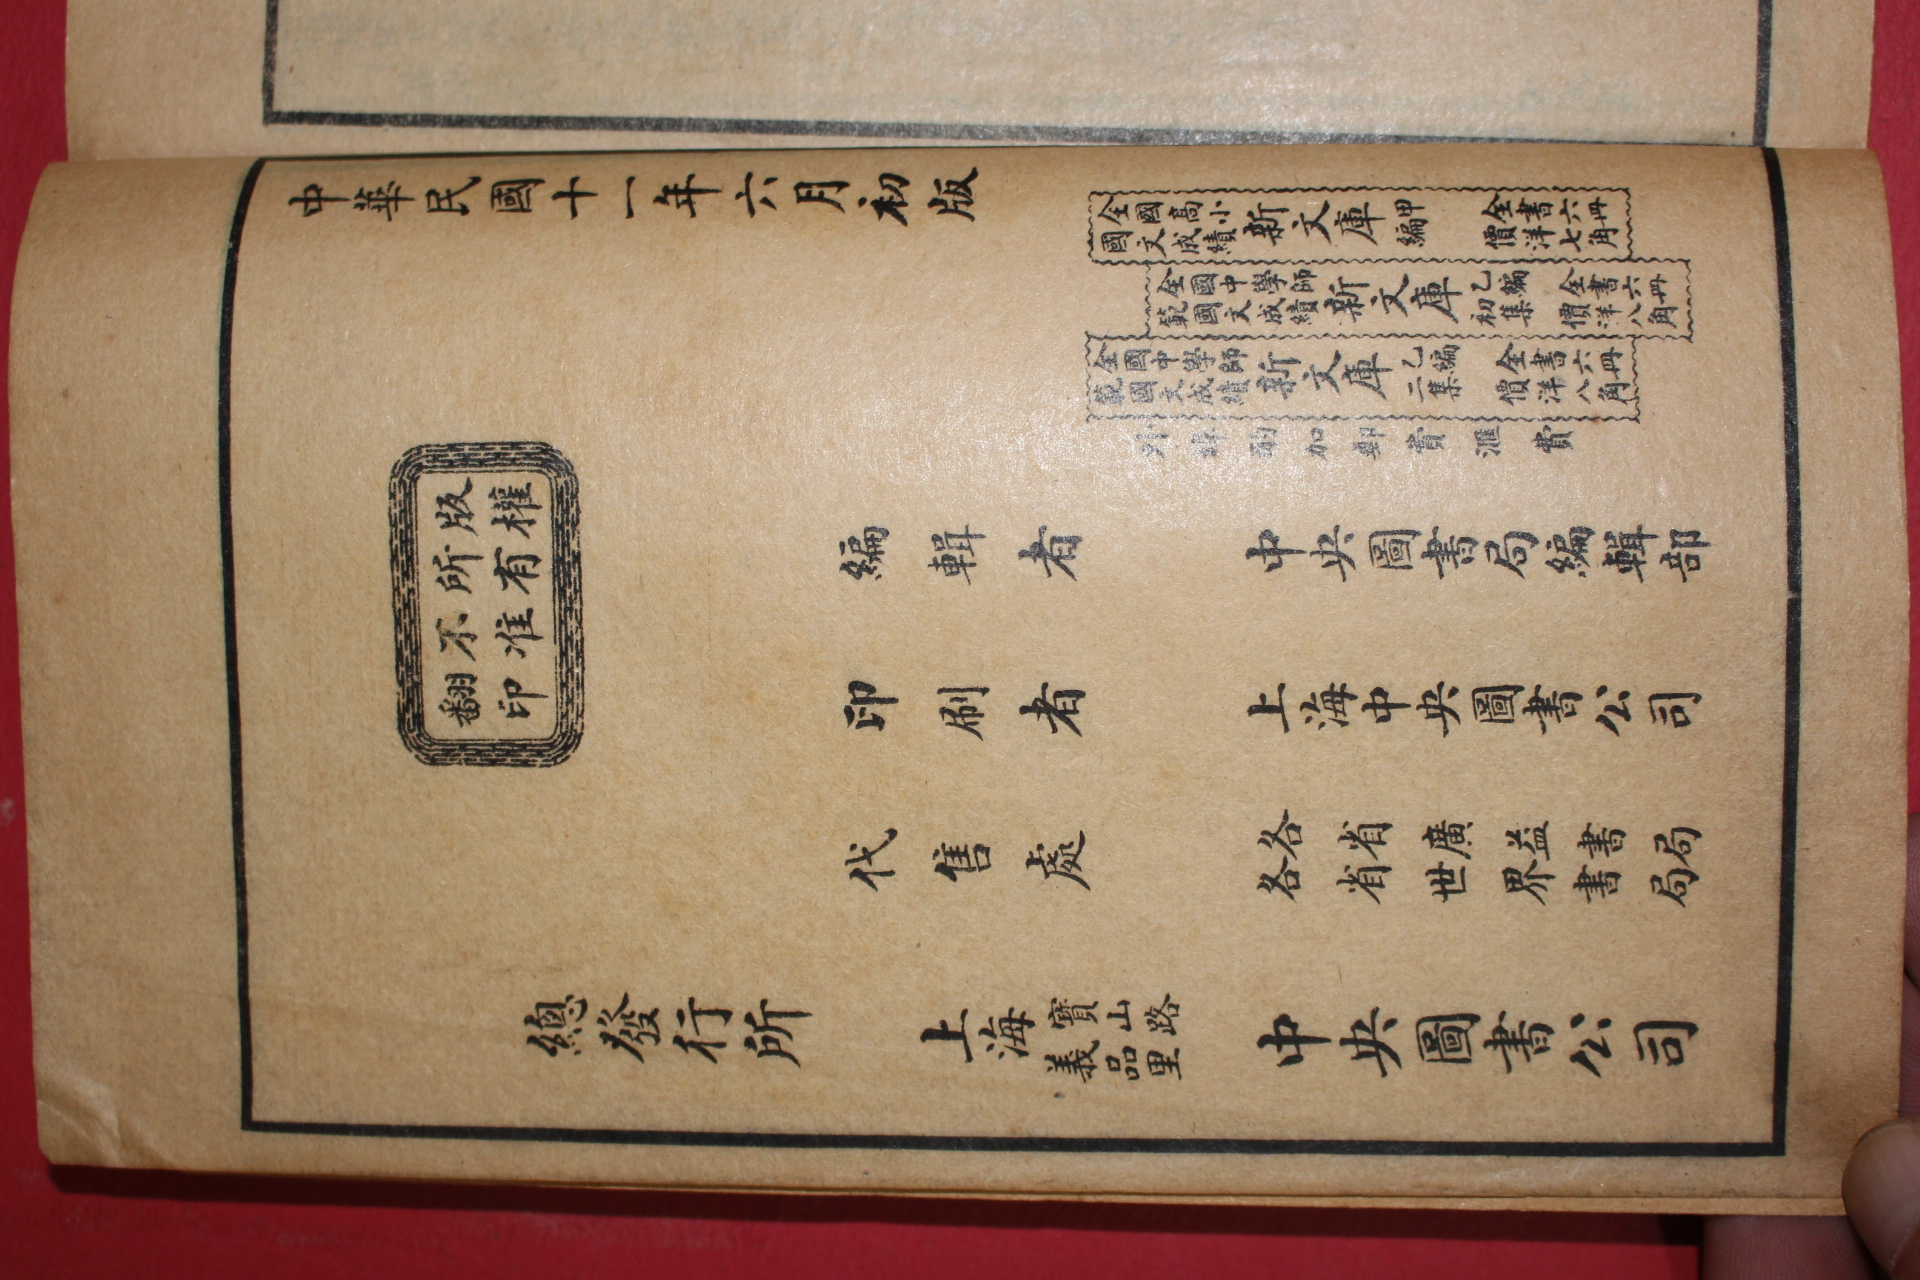 中華民國十一年六月初版
全國高小國文成績新文庫甲編 全書六冊價洋七角
全國中學師範國文成績新文庫乙編初集 全書六冊價洋八角
全國中學師範國文成績新文庫乙編二集 全書六冊價洋八角
外埠酌加郵費滙費
版權所有不准翻印
編輯者 中央圖書局編輯部
印刷者 上海中央圖書公司
代售處 各省廣益書局 各省世界書局
總發行所 上海寶山路義品里 中央圖書公司